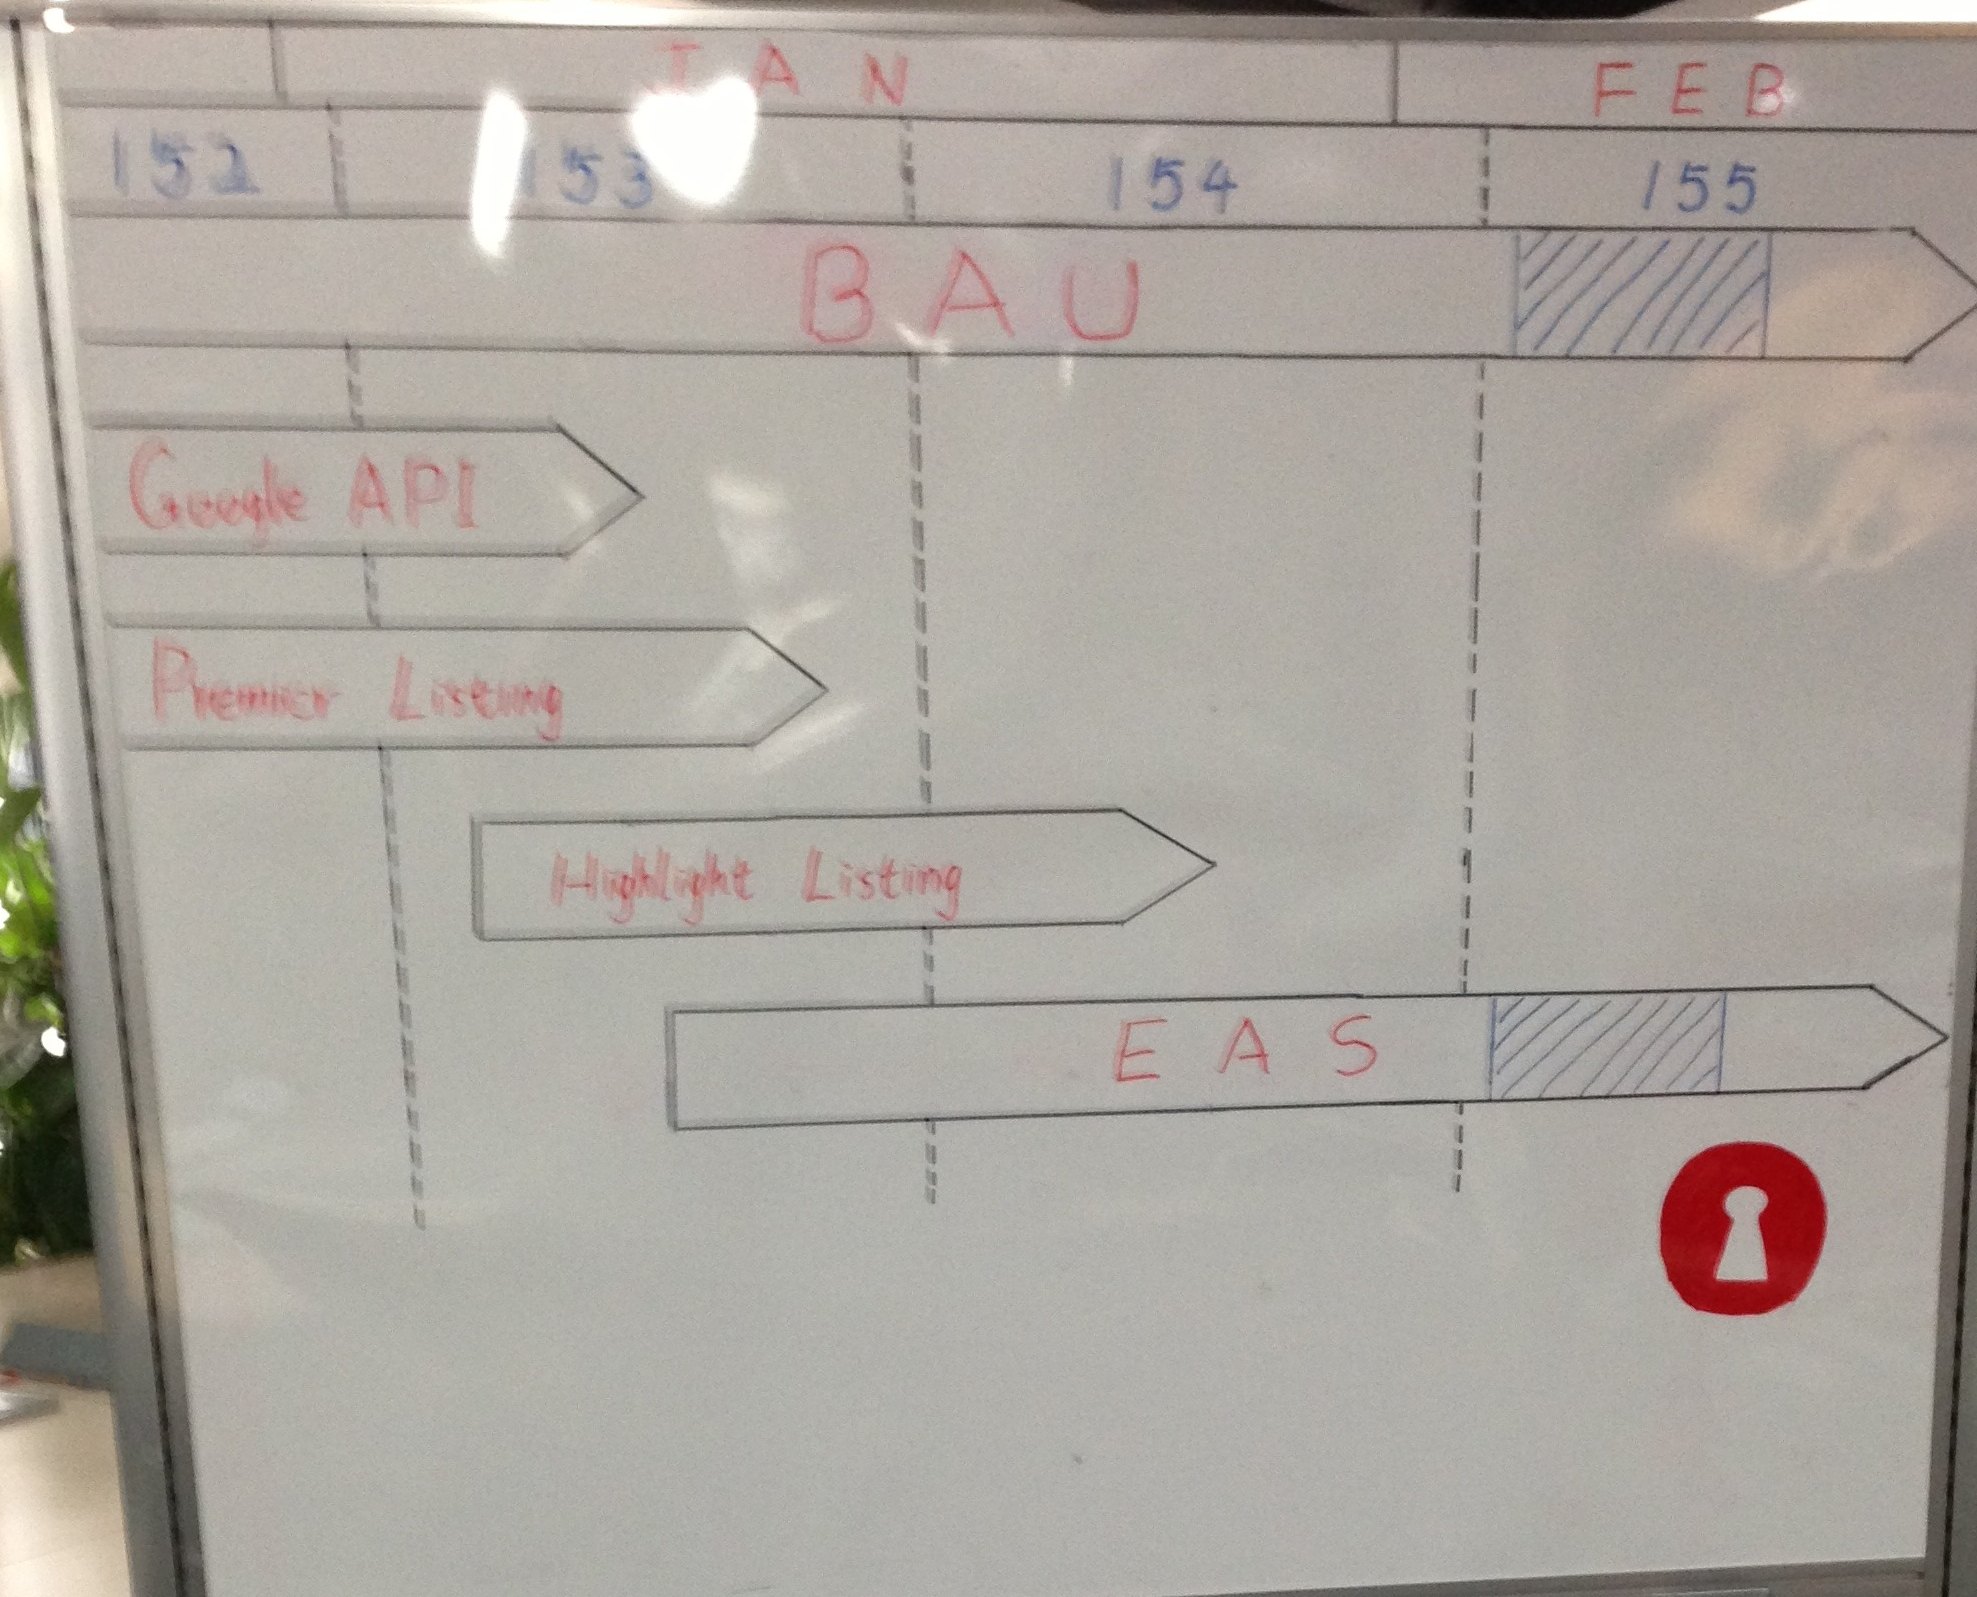 JAN FEB
152 153 154 155
BAU
Google API
Premier Listing
Highlight Listing
EAS